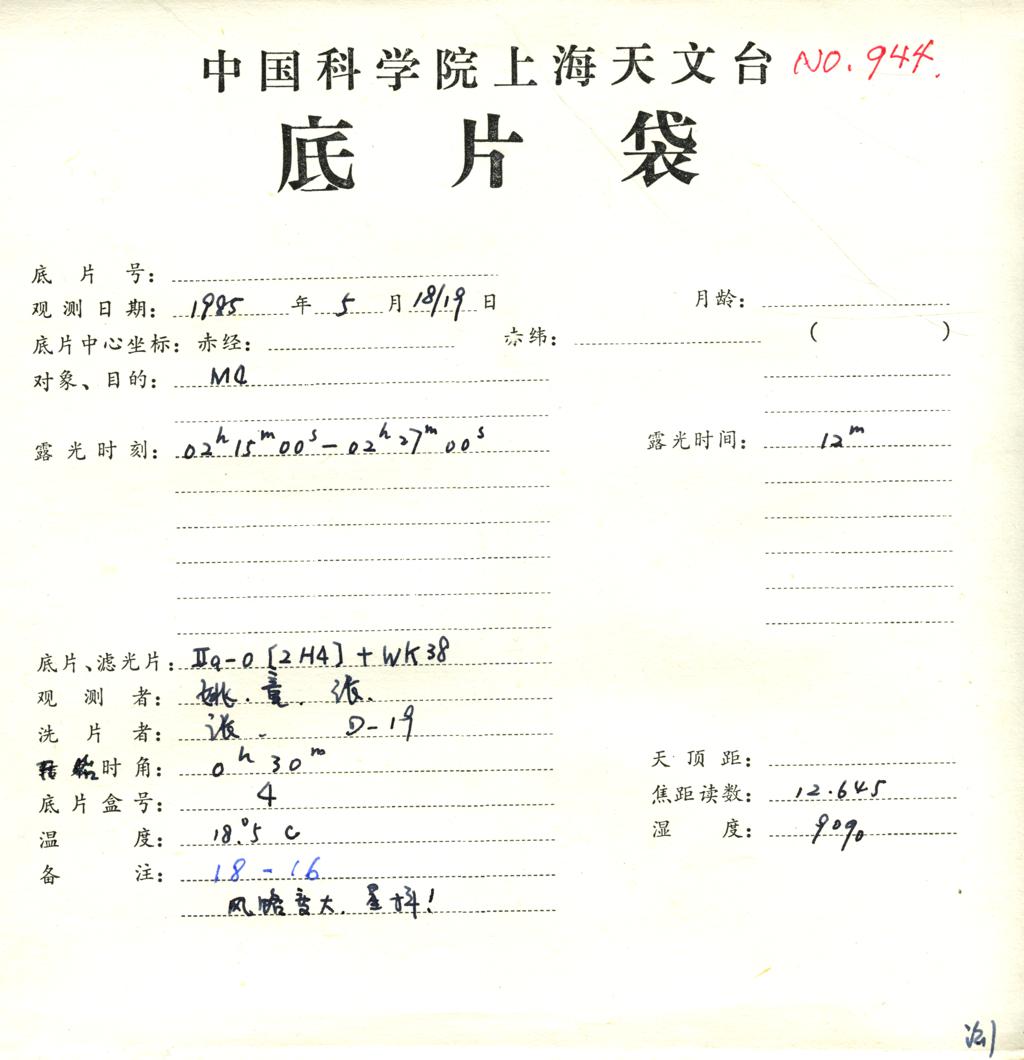 中国科学院上海天文台 NO. 944.
底片袋
底片号：
观测日期：1985年5月18/19日 月龄：
底片中心坐标：赤经： 赤纬： ( )
对象、目的：M4
露光时刻：02h15m00s－02h27m00s 露光时间：12m
底片、滤光片：IIa-O [2H4] + WK38
观测者：姚．童．张．
洗片者：张． D-19
时角：0h30m 天顶距：
底片盒号：4 焦距读数：12.645
温度：18.°5 C 湿度：90%
备注：18-16
风略变大．星抖！